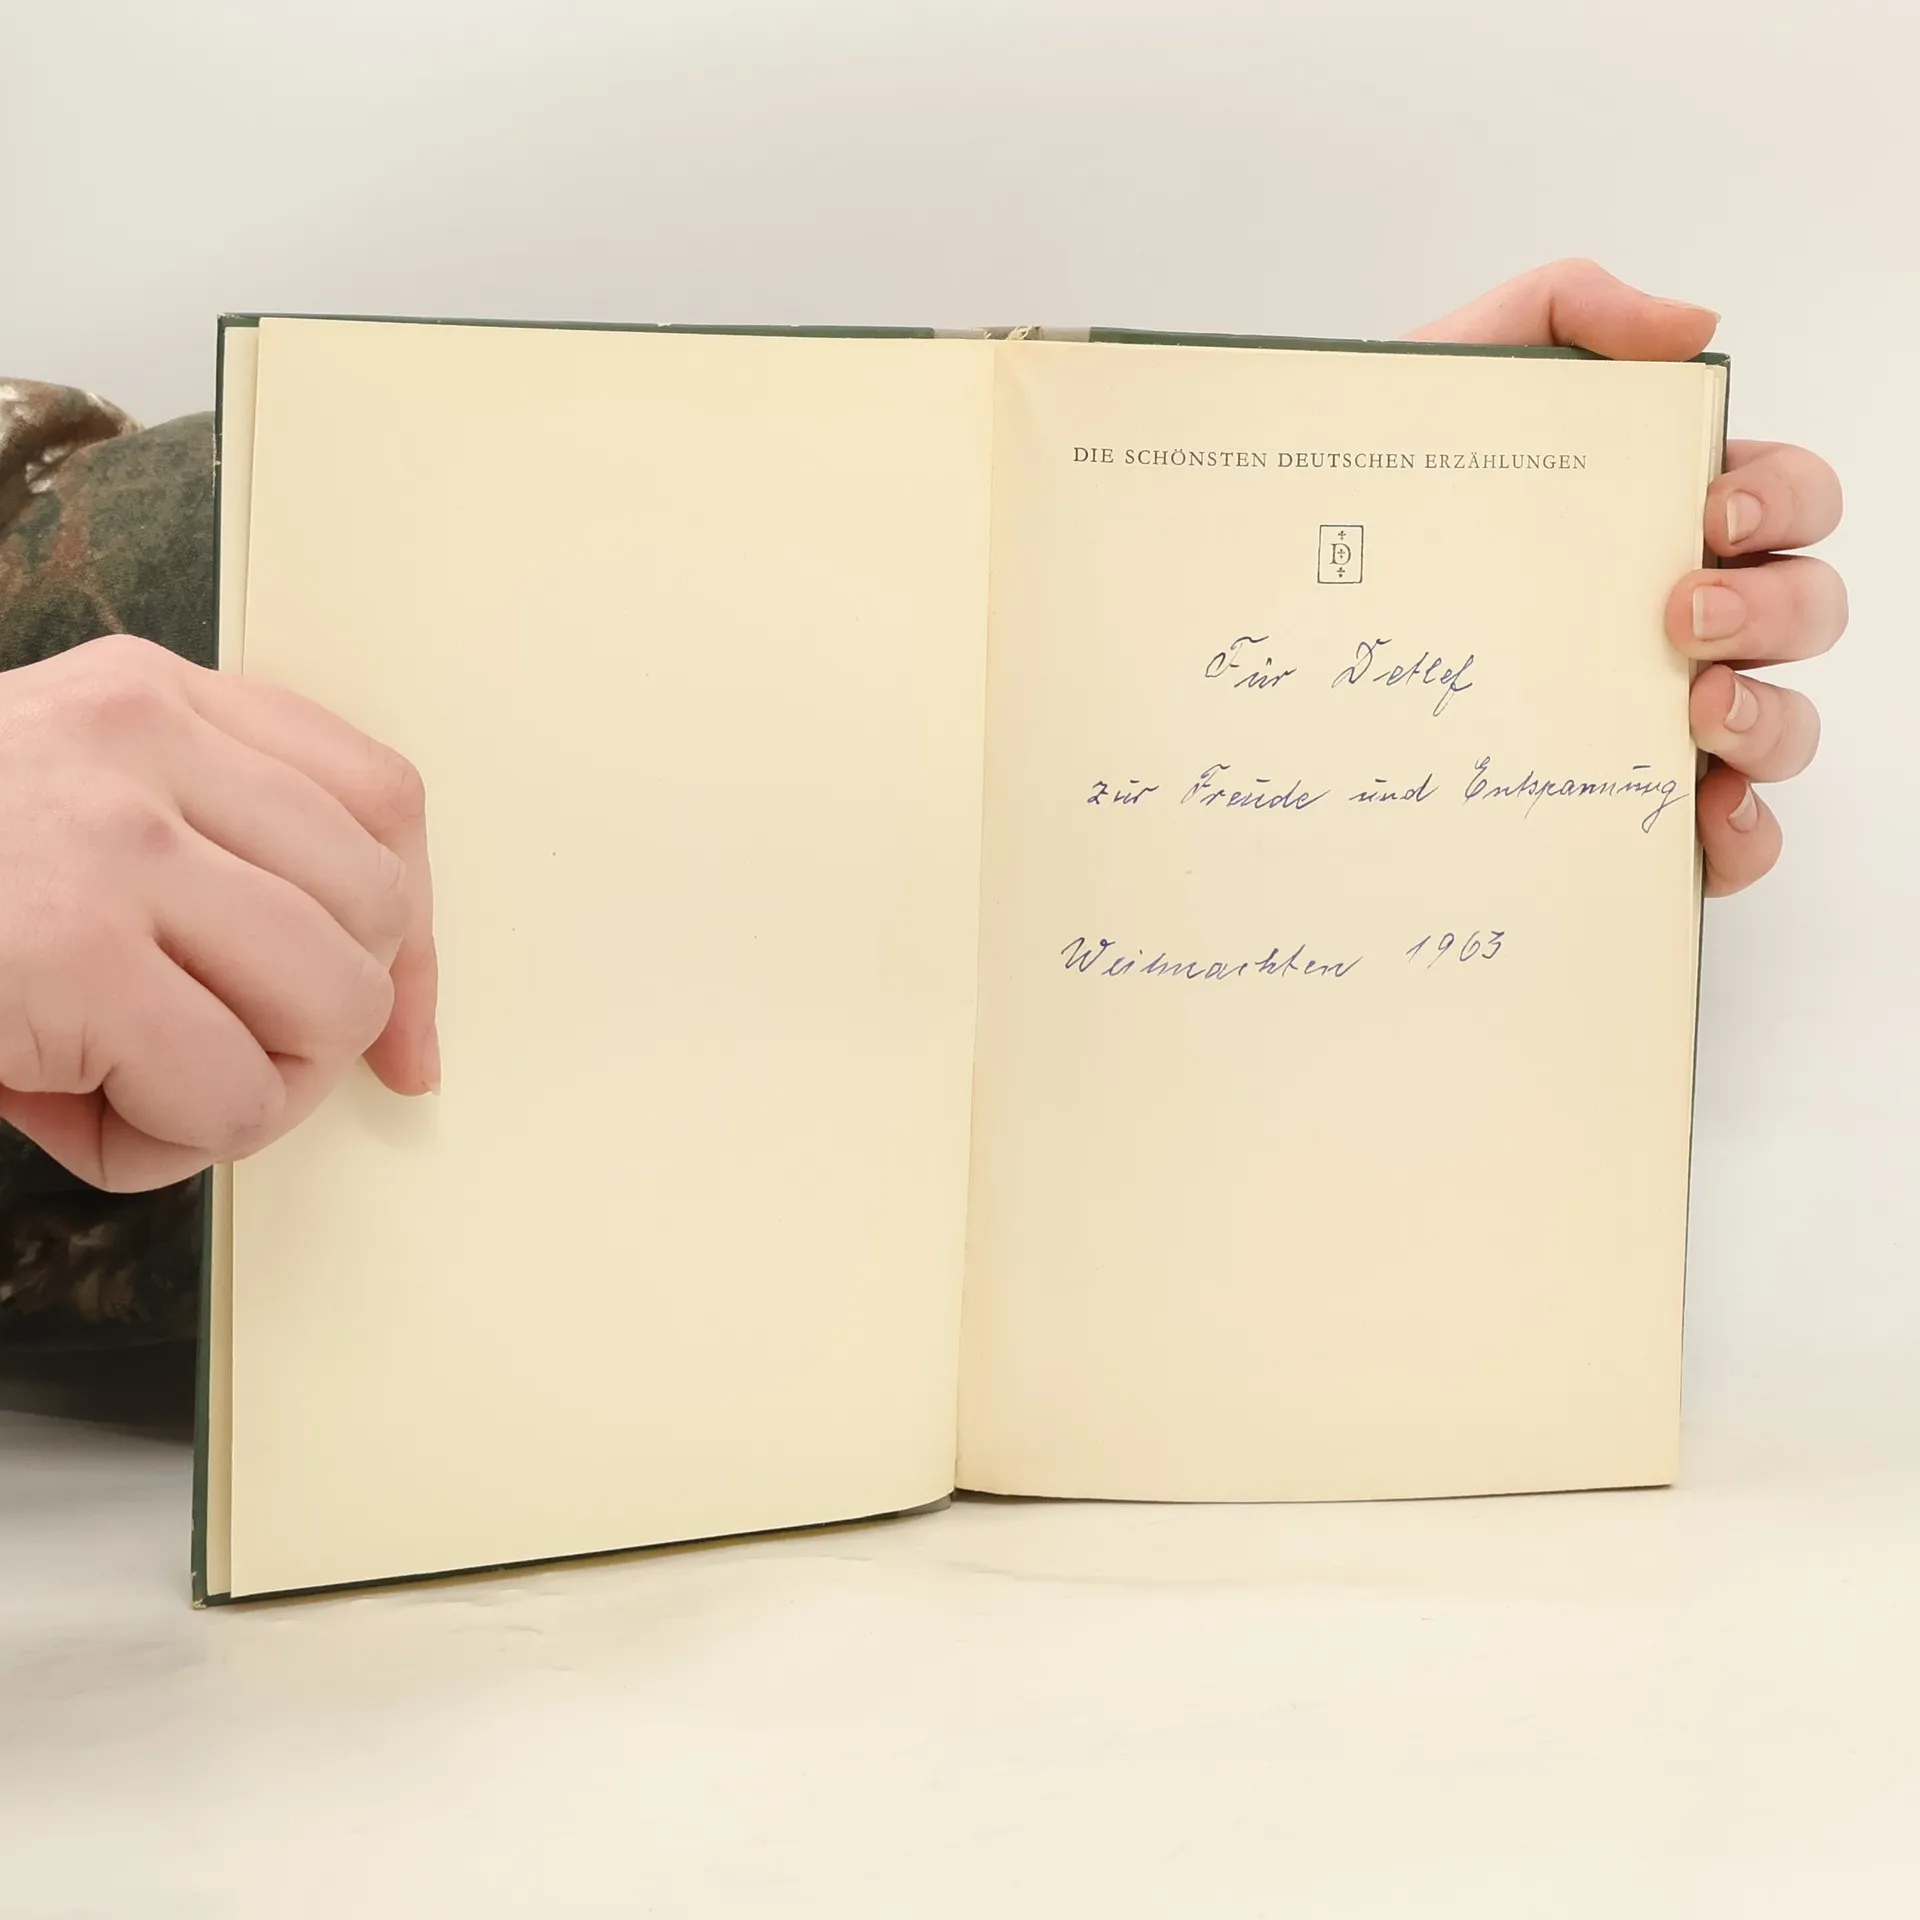 DIE SCHÖNSTEN DEUTSCHEN ERZÄHLUNGEN
D
Für Detlef
zur Freude und Entspannung
Weihnachten 1963